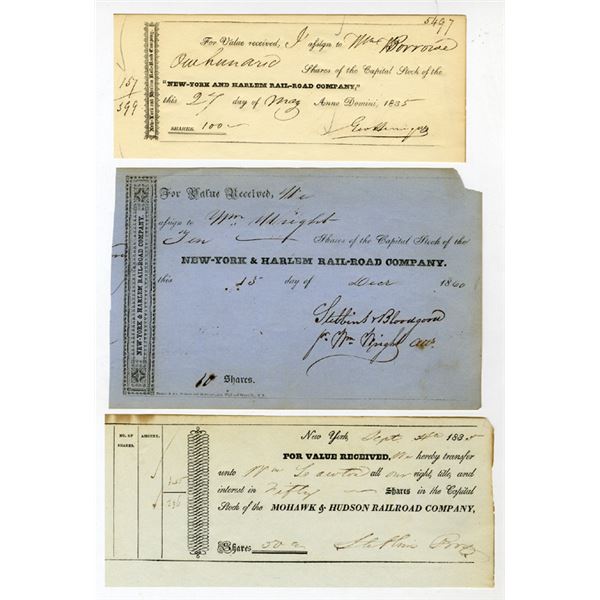 5497
For Value received, I assign to
One hundred Shares of the Capital Stock of the
"NEW-YORK AND HARLEM RAIL-ROAD COMPANY,"
this 27 day of May Anno Domini, 1835
SHARES. 100
New-York and Harlem Rail-Road Company.
157
399
For Value Received, We
assign to Wm Wright
Ten Shares of the Capital Stock of the
NEW-YORK & HARLEM RAIL-ROAD COMPANY.
this 15 day of Decr 1860
Stebbins & Bloodgood
pr Wm Wright
10 Shares.
NEW-YORK & HARLEM RAIL-ROAD COMPANY.
NO. OF SHARES.
AMOUNT.
New York, Sept 1835
FOR VALUE RECEIVED, We hereby transfer
unto Wm Lawton all our right, title, and
interest in Fifty Shares in the Capital
Stock of the MOHAWK & HUDSON RAILROAD COMPANY,
Shares 50